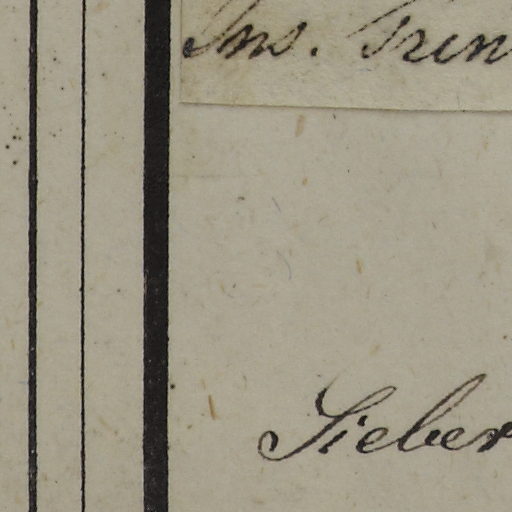 Ins. Trin
Sieber